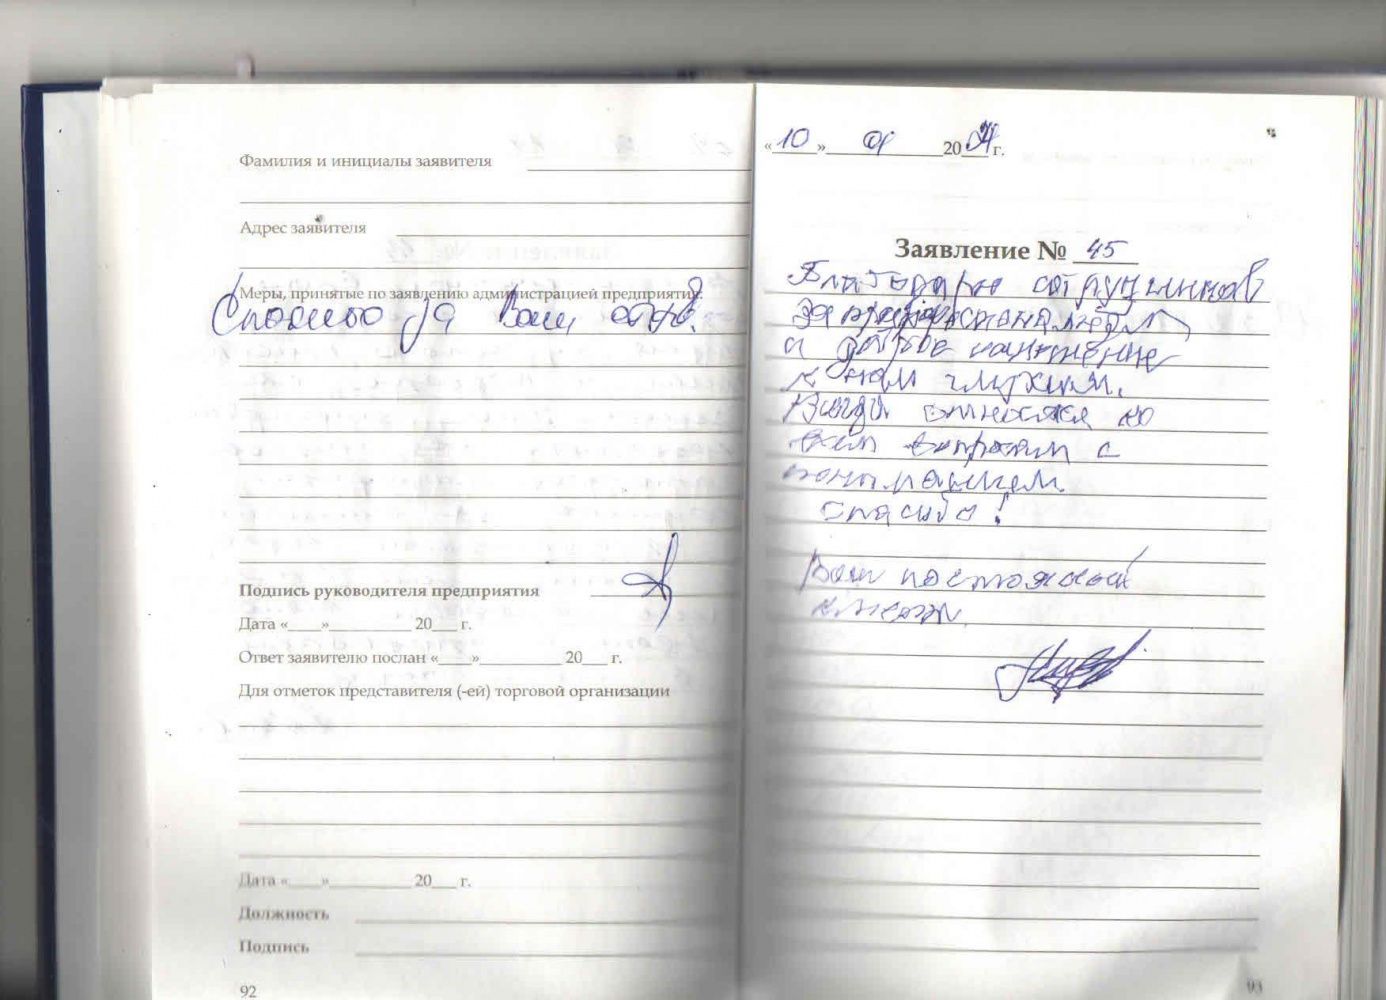 Фамилия и инициалы заявителя
Адрес заявителя
Меры, принятые по заявлению администрацией предприятия:
Спасибо за Ваш отзыв.
Подпись руководителя предприятия
Дата «___»__________ 20___ г.
Ответ заявителю послан «___»__________ 20___ г.
Для отметок представителя (-ей) торговой организации
Дата «___»__________ 20___ г.
Должность
Подпись
92
«10» 01 2024 г.
Заявление № 45
Благодарю сотрудников
за профессионализм
и доброе
к нам глухим.
Всегда ко
всем вопросам с
пониманием.
Спасибо!
Ваш постоянный
клиент.
93